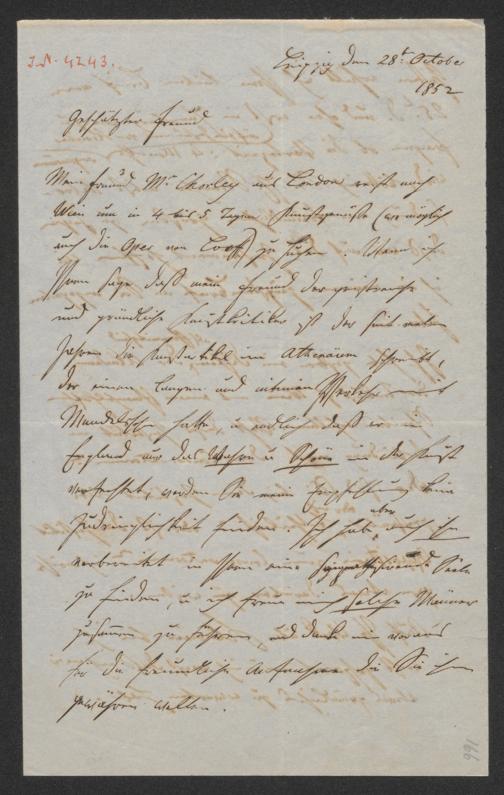 I.N. 4243.
Leipzig den 28t October
1852
Geschätzter Freund
Mein Freund Mr Chorley aus London reist nach
Wien um in 4 bis 5 Tagen Kunstgenüsse (wo möglich
auch die Oper von ) zu suchen. Wenn ich
Ihnen sage daß mein Freund der geistreiche
und gründliche Kunstkritiker ist der seit vielen
Jahren die Kunstartikel im Athenäum schreibt,
der einen langen und intimen Verkehr mit
Mendelssohn hatte, u endlich daß er in
England nur das Wahre u Schöne in der Kunst
verfechtet, werden Sie meine Empfehlung keine
Zudringlichkeit finden. Ich habe aber auch ihn
vorbereitet in Ihnen eine sympathisirende Seele
zu finden, u ich freue mich solche Männer
zusammen zu führen, und danke im voraus
für die freundliche Aufnahme die Sie ihm
gewähren wollen.
166